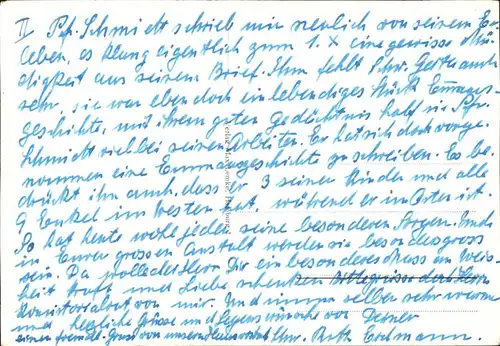 II Pfr. Schmidt schrieb mir neulich von seinem Er-
leben, es klang eigentlich zum 1. x eine gewisse Mü-
digkeit aus seinem Brief. Ihm fehlt Schw. Gertr. auch
sehr, sie war eben doch ein lebendiges Stück Emmaus-
geschichte, mit ihrem guten Gedächtnis half sie Pfr.
Schmidt viel bei seinen Arbeiten. Er hat sich doch vorge-
nommen eine Emmausgeschichte zu schreiben. Es be-
drückt ihn auch, dass er 3 seiner Kinder und alle
9 Enkel im Westen hat, während er im Osten ist.
So hat heute wohl jeder seine besonderen Sorgen. Und
in Eurer grossen Anstalt werden sie besonders gross
sein. Da wolle der Herr Dir ein besonderes Mass an Weis-
heit Kraft und Liebe schenken
Konsistorialrat von mir. Und nun selber sehr warme
und herzliche Grüsse und Segenswünsche von Deiner
einen freundl. Gruss von unserm Ruth Erdmann.